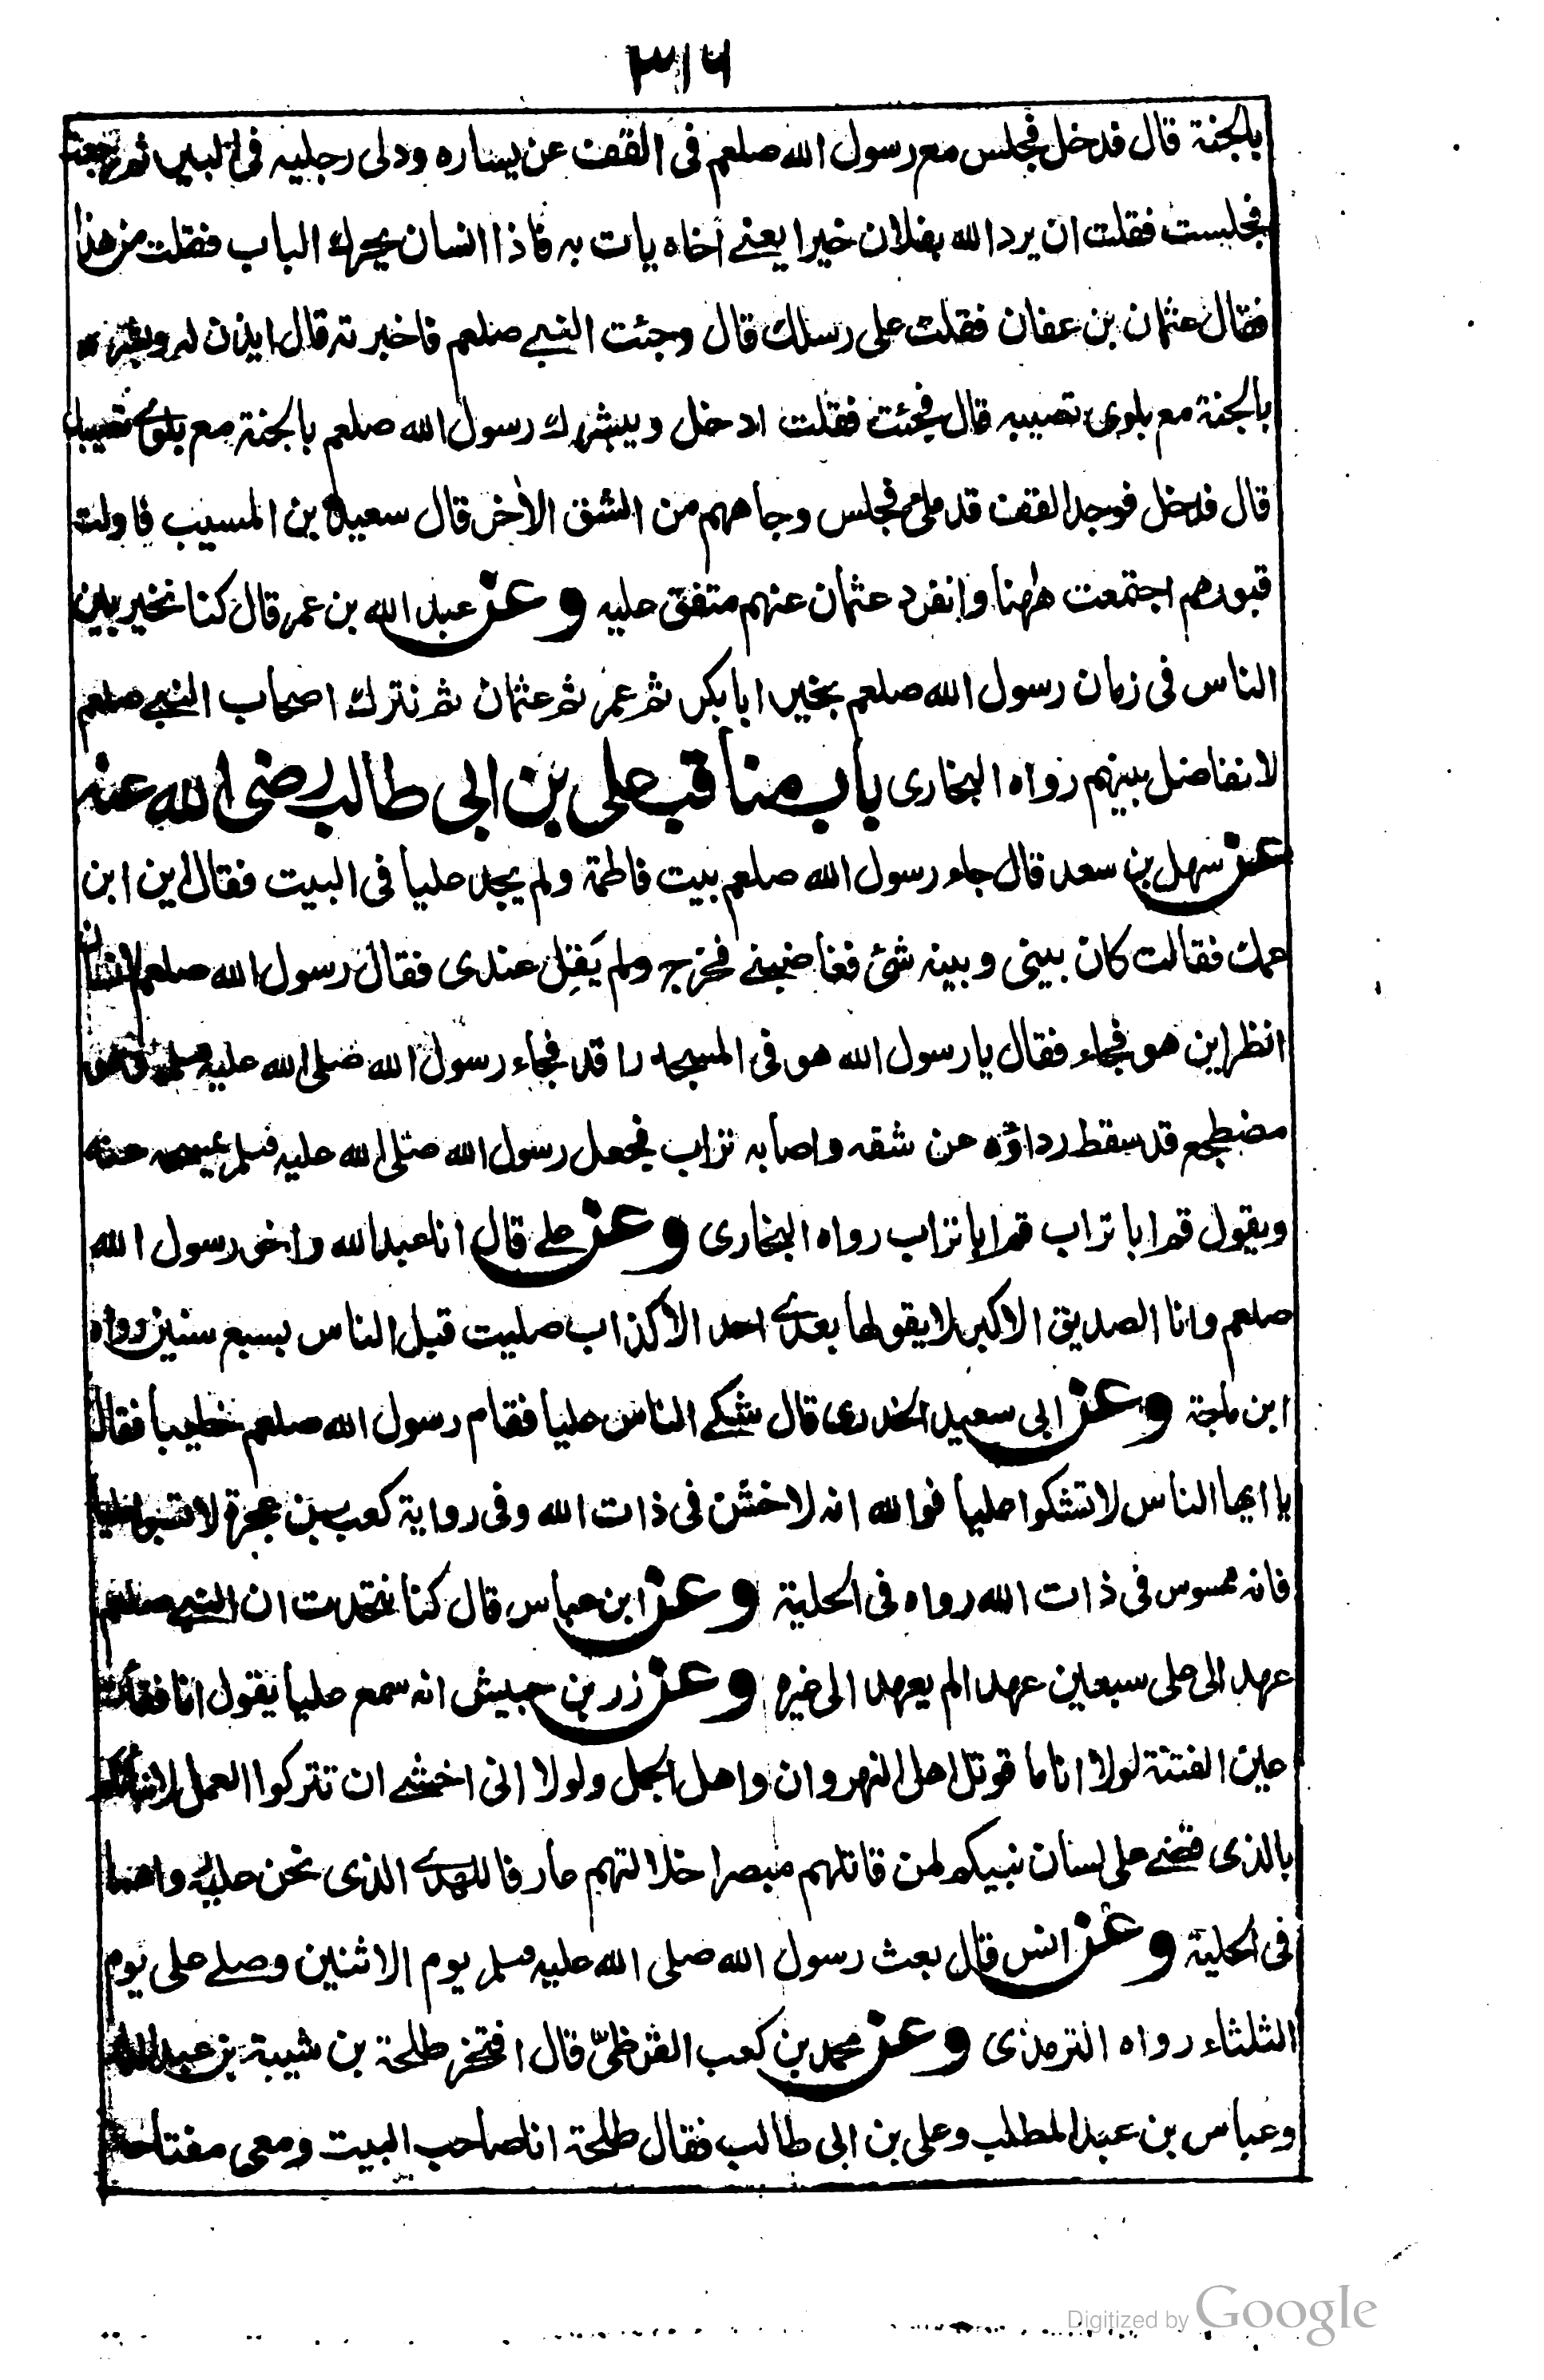 ٣١٦
بالجنة قال فدخل فجلس مع رسول الله صلعم فى القف عن يساره ودلى رجليه فى البير ثم رجعت
فجلست فقلت ان يرد الله بفلان خيرا يعنے اخاه يات به فاذا انسان يحرك الباب فقلت من هذا
فقال عثمان بن عفان فقلت على رسلك قال وجئت النبے صلعم فاخبرته قال ايذن له وبشره
بالجنة مع بلوى تصيبه قال فجئت فقلت ادخل ويبشرك رسول الله صلعم بالجنة مع بلوى تصيبك
قال فدخل فوجد القف قد ملئ فجلس وجاههم من الشق الاخر قال سعيد بن المسيب فاولت
قبورهم اجتمعت ههنا وانفرد عثمان عنهم متفق عليه وعن عبد الله بن عمر قال كنا نخير بين
الناس فى زمان رسول الله صلعم بخير ابا بكر ثم عمر ثم عثمان ثم نترك اصحاب النبے صلعم
لا نفاضل بينهم رواه البخارى باب مناقب على بن ابى طالب رضى الله عنه
عن سهل بن سعد قال جاء رسول الله صلعم بيت فاطمة ولم يجد عليا فى البيت فقال اين ابن
عمك فقالت كان بينى وبينه شئ فغاضبنے فخرج ولم يَقِل عندى فقال رسول الله صلعم لانسان
انظر اين هو فجاء فقال يا رسول الله هو فى المسجد راقد فجاء رسول الله صلى الله عليه وسلم وهو
مضطجع قد سقط رداؤه عن شقه واصابه تراب فجعل رسول الله صلى الله عليه وسلم يمسحه عنه
ويقول قم ابا تراب قم ابا تراب رواه البخارى وعن علے قال انا عبد الله واخو رسول الله
صلعم وانا الصديق الاكبر لا يقولها بعدے احد الا كذاب صليت قبل الناس بسبع سنين رواه
ابن ماجة وعن ابى سعيد الخدرى قال شكے الناس عليا فقام رسول الله صلعم خطيبا فقال
يا ايها الناس لا تشكوا عليا فوالله انه لاخشن فى ذات الله وفى رواية كعب بن عجرة لا تسبوا عليا
فانه ممسوس فى ذات الله رواه فى الحلية وعن ابن عباس قال كنا نتحدث ان النبے صلعم
عهد الى على سبعين عهدا لم يعهد الى غيره وعن زر بن حبيش انه سمع عليا يقول انا فقأت
عين الفتنة لولا انا ما قوتل اهل النهروان واهل الجمل ولولا انى اخشے ان تتركوا العمل لانبأتكم
بالذى قضے على لسان نبيكم لمن قاتلهم مبصرا ضلالتهم عارفا للهدے الذى نحن عليه واهما
فى الحلية وعن انس قال بعث رسول الله صلى الله عليه وسلم يوم الاثنين وصلے على يوم
الثلثاء رواه الترمذى وعن محمد بن كعب القرظىّ قال افتخر طلحة بن شيبة بن عبد الدار
وعباس بن عبد المطلب وعلى بن ابى طالب فقال طلحة انا صاحب البيت ومعى مفتاحه
Digitized by Google